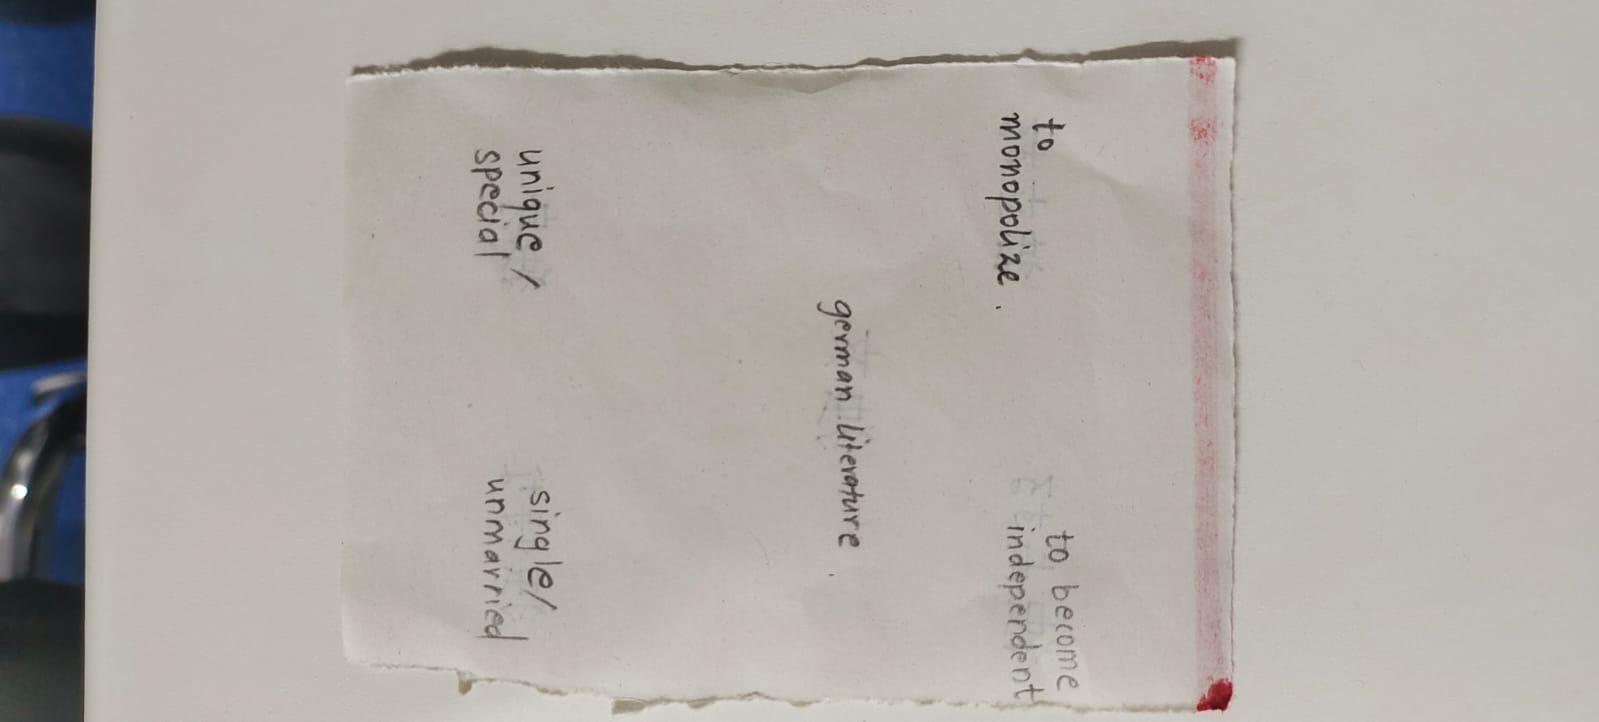 to
monopolize.
to become
independent
german literature
unique/
special
single/
unmarried